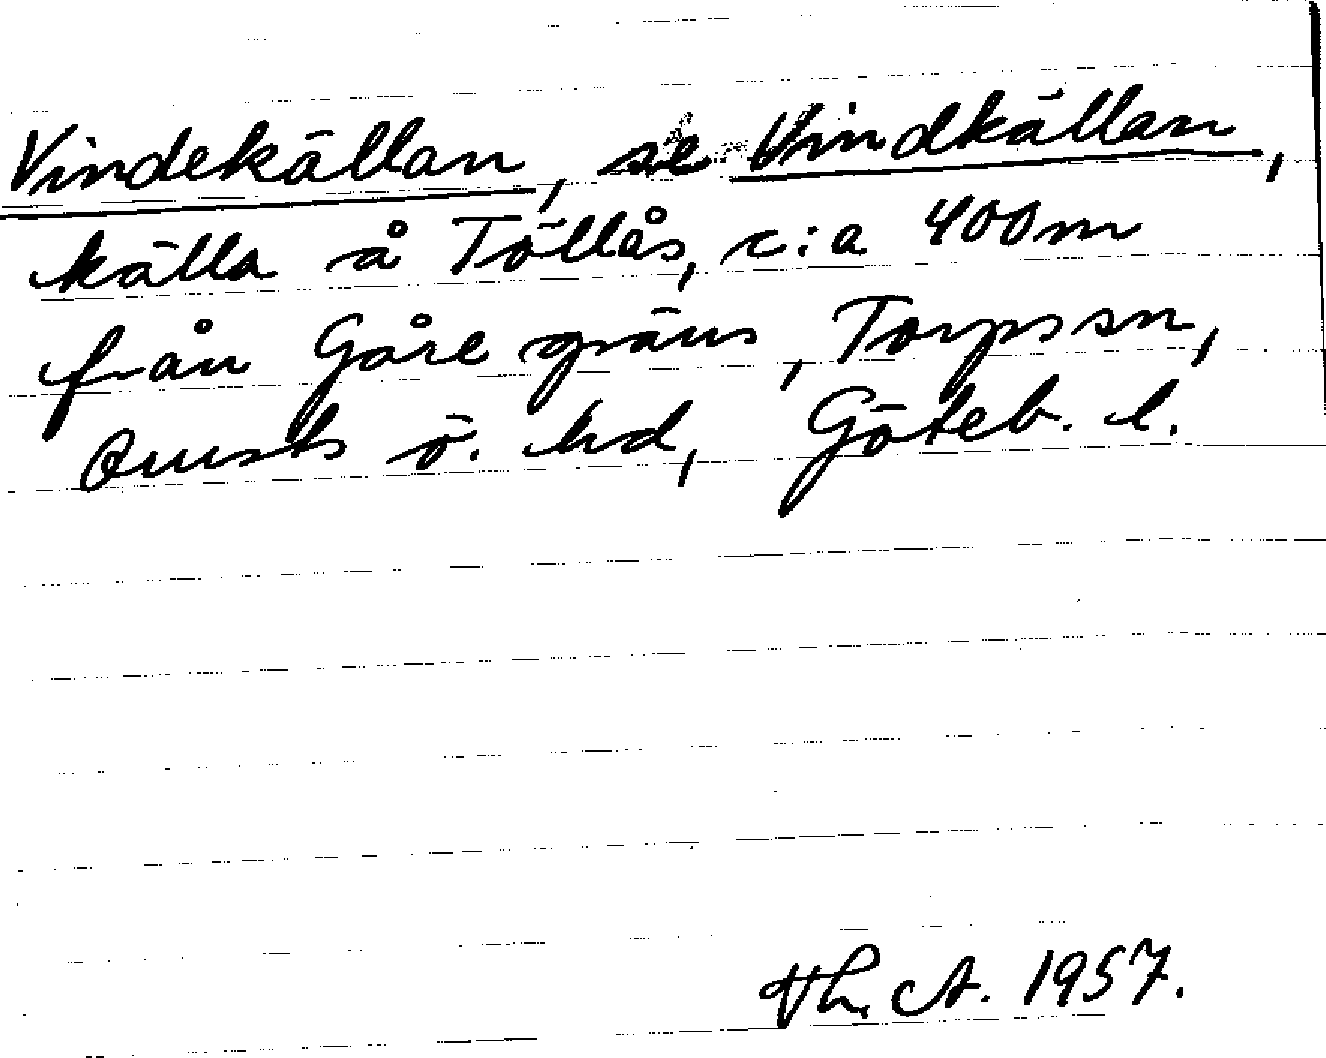 Vindekällan, se Vindkällan,
källa å Töllås, c:a 400m
från Gåre gräns, Torps sn,
Orusts ö. hd, Göteb. l.
Th. A. 1957.